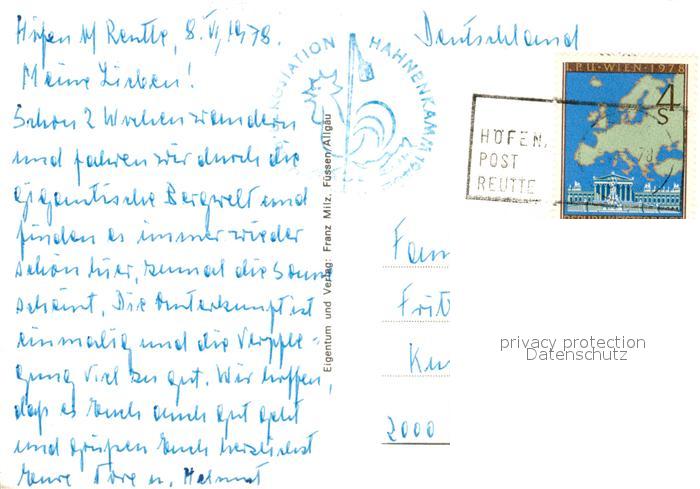 Höfen b/ Reutte, 8. VI, 1978.
Meine Lieben!
Schon 2 Wochen wandern
und fahren wir durch die
gigantische Bergwelt und
finden es immer wieder
schön hier, zumal die Sonne
scheint. Die Unterkunft ist
einmalig und die Verpfle-
gung viel zu gut. Wir hoffen,
daß es Euch auch gut geht
und grüßen Euch herzlichst
Eure Dore u. Helmut
Eigentum und Verlag: Franz Milz, Füssen/Allgäu
STATION HAHNENKAMM
Deutschland
HÖFEN,
POST
REUTTE
IPU-WIEN-1978
4
S
Fam
Frit
Ku
2000
privacy protection
Datenschutz